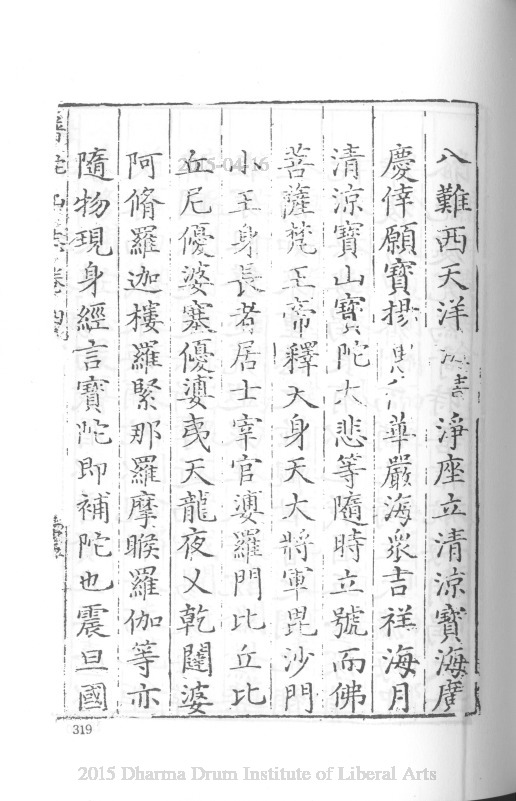 八難西天洋淨座立清涼寶海廣
慶倖願寶揚華嚴海衆吉祥海月
清涼寶山寶陀大悲等隨時立號而佛
菩薩梵王帝釋大身天大將軍毘沙門
小王身長者居士宰官婆羅門比丘比
丘尼優婆塞優婆夷天龍夜乂乾闥婆
阿脩羅迦樓羅緊那羅摩睺羅伽等亦
隨物現身經言寶陀即補陀也震旦國
2015-04-16
319
2015 Dharma Drum Institute of Liberal Arts